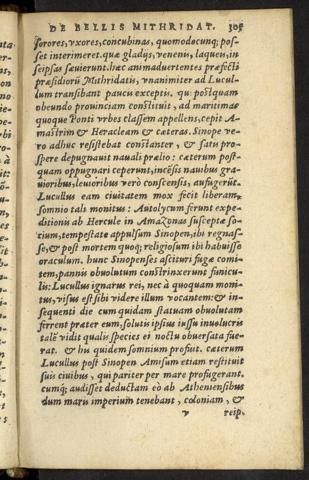 DE BELLIS MITHRIDAT. 305
sorores, vxores, concubinas, quomodocunq; pos-
set interimeret. quæ gladijs, venenis, laqueu, in
seipsas sæuierunt. hæc animaduertentes præfecti
præsidiorũ Mithridatis, vnanimiter ad Lucul
lum transibant paucis exceptis. qui postquam
obeundo prouinciam constituit, ad maritimæ
quoque Ponti vrbes classem appellens, cepit A-
mastrim & Heracleam & cæteras. Sinope ve-
ro adhuc resistebat constanter, & satu pro-
spere depugnauit nauali prælio: cæterum post-
quam oppugnari ceperunt, incẽsis nauibus gra-
uioribus, leuioribus verò conscensis, aufugerũt.
Lucullus eam ciuitatem mox fecit liberam,
somnio tali monitus: Autolycum ferunt expe-
ditionis ab Hercule in Amazonas susceptæ so-
cium, tempestate appulsum Sinopen, ibi regnas-
se, & post mortem quoq; religiosum ibi habuisse
oraculum. hunc Sinopenses asciturι fugæ comi-
tem, pannis obuolutum constrinxerunt funicu-
lis: Lucullus ignarus rei, nec à quoquam moni-
tus, visus est sibi videre illum vocantem: & in-
sequenti die cum quidam statuam obuolutam
ferrent præter eum, solutis ipsius iussu inuolucris
talẽ vidit qualis species ei noctu obuersata fue-
rat. & hu quidem somnium profuit. cæterum
Lucullus post Sinopen Amisum etiam restituit
suis ciuibus, qui pariter per mare profugerant.
cumq; audisset deductam eò ab Atheniensibus
dum maris imperium tenebant, coloniam, &
v reip.